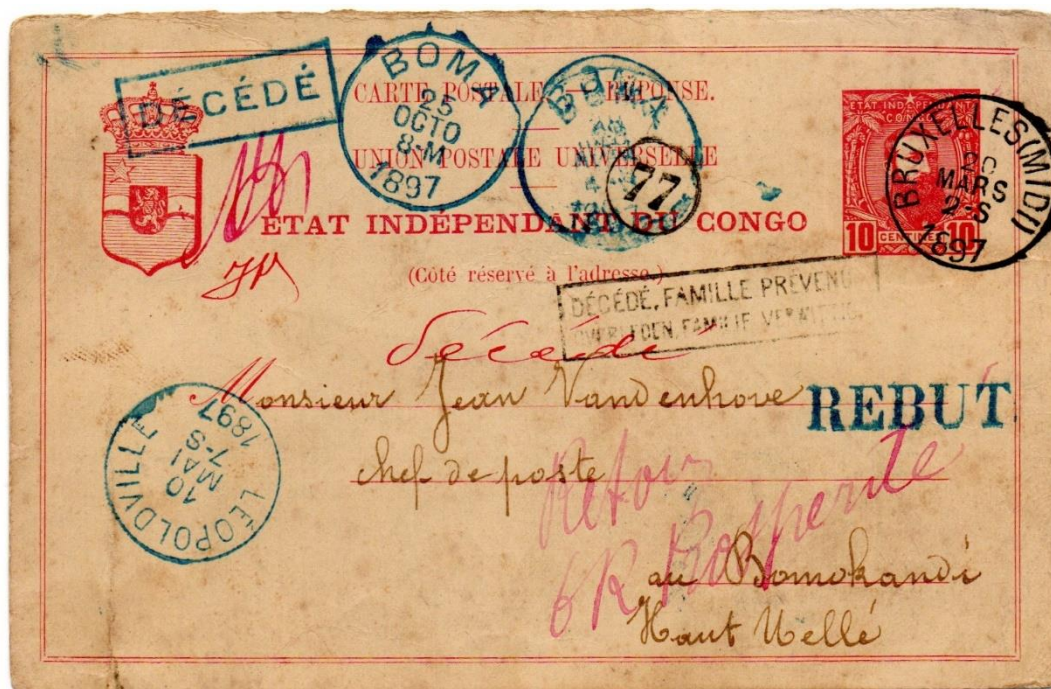 DÉCÉDÉ
BOMA
25
OCTO
8-M
1897
BOMA
77
CARTE POSTALE — RÉPONSE.
UNION POSTALE UNIVERSELLE
ETAT INDÉPENDANT DU CONGO
(Côté réservé à l'adresse.)
ETAT INDÉPENDANT
CONGO
10 CENTIMES 10
BRUXELLES (MIDI)
MARS
2-S
1897
DÉCÉDÉ, FAMILLE PRÉVENUE
OVERLEDEN, FAMILIE
Décédé
Monsieur Jean Vandenhove
REBUT
chef de poste
LEOPOLDVILLE
10
MAI
7-S
1897
Retour
6 R Prosperité
au Bomokandi
Haut Uellé